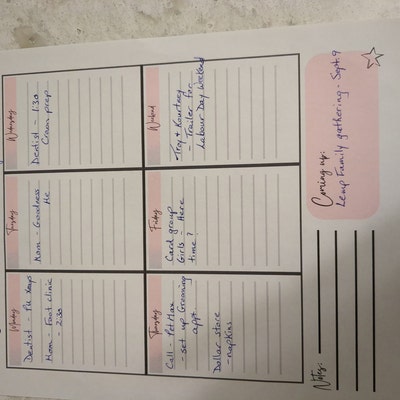 Monday
Dentist - P/u xrays
Mom - Foot clinic
- 2:30
Tuesday
Mom - Goodness
Me
Wednesday
Dentist - 1:30
Crown prep
Thursday
Call - Pet Max
- set up Grooming
appt.
Dollar store
- napkins
Friday
Card group
Girls - Here
time?
Weekend
Troy & Kourtney
- Trailer for
Labour Day weekend
Notes:
Coming up:
Lemp Family gathering - Sept. 9